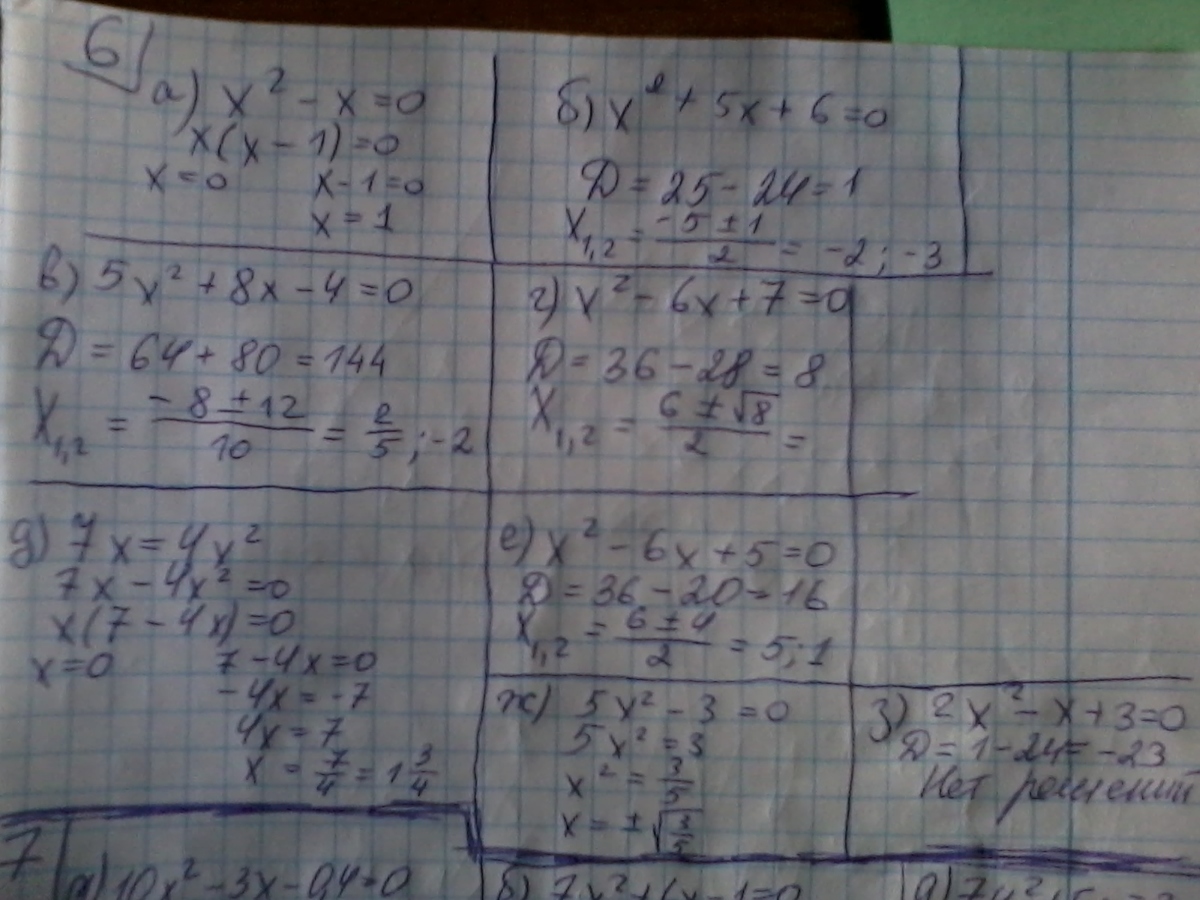 6
а) x² - x = 0
x(x - 1) = 0
x = 0 x - 1 = 0
x = 1
б) x² + 5x + 6 = 0
D = 25 - 24 = 1
X₁,₂ = (-5 ± 1)/2 = -2; -3
в) 5x² + 8x - 4 = 0
D = 64 + 80 = 144
X₁,₂ = (-8 ± 12)/10 = 2/5; -2
г) x² - 6x + 7 = 0
D = 36 - 28 = 8
X₁,₂ = (6 ± √8)/2 =
д) 7x = 4x²
7x - 4x² = 0
x(7 - 4x) = 0
x = 0 7 - 4x = 0
-4x = -7
4x = 7
x = 7/4 = 1 3/4
е) x² - 6x + 5 = 0
D = 36 - 20 = 16
X₁,₂ = (6 ± 4)/2 = 5; 1
ж) 5x² - 3 = 0
5x² = 3
x² = 3/5
x = ± √(3/5)
з) 2x² - x + 3 = 0
D = 1 - 24 = -23
Нет решений
7
а) 10x² - 3x - 0,4 = 0
б) 7x²